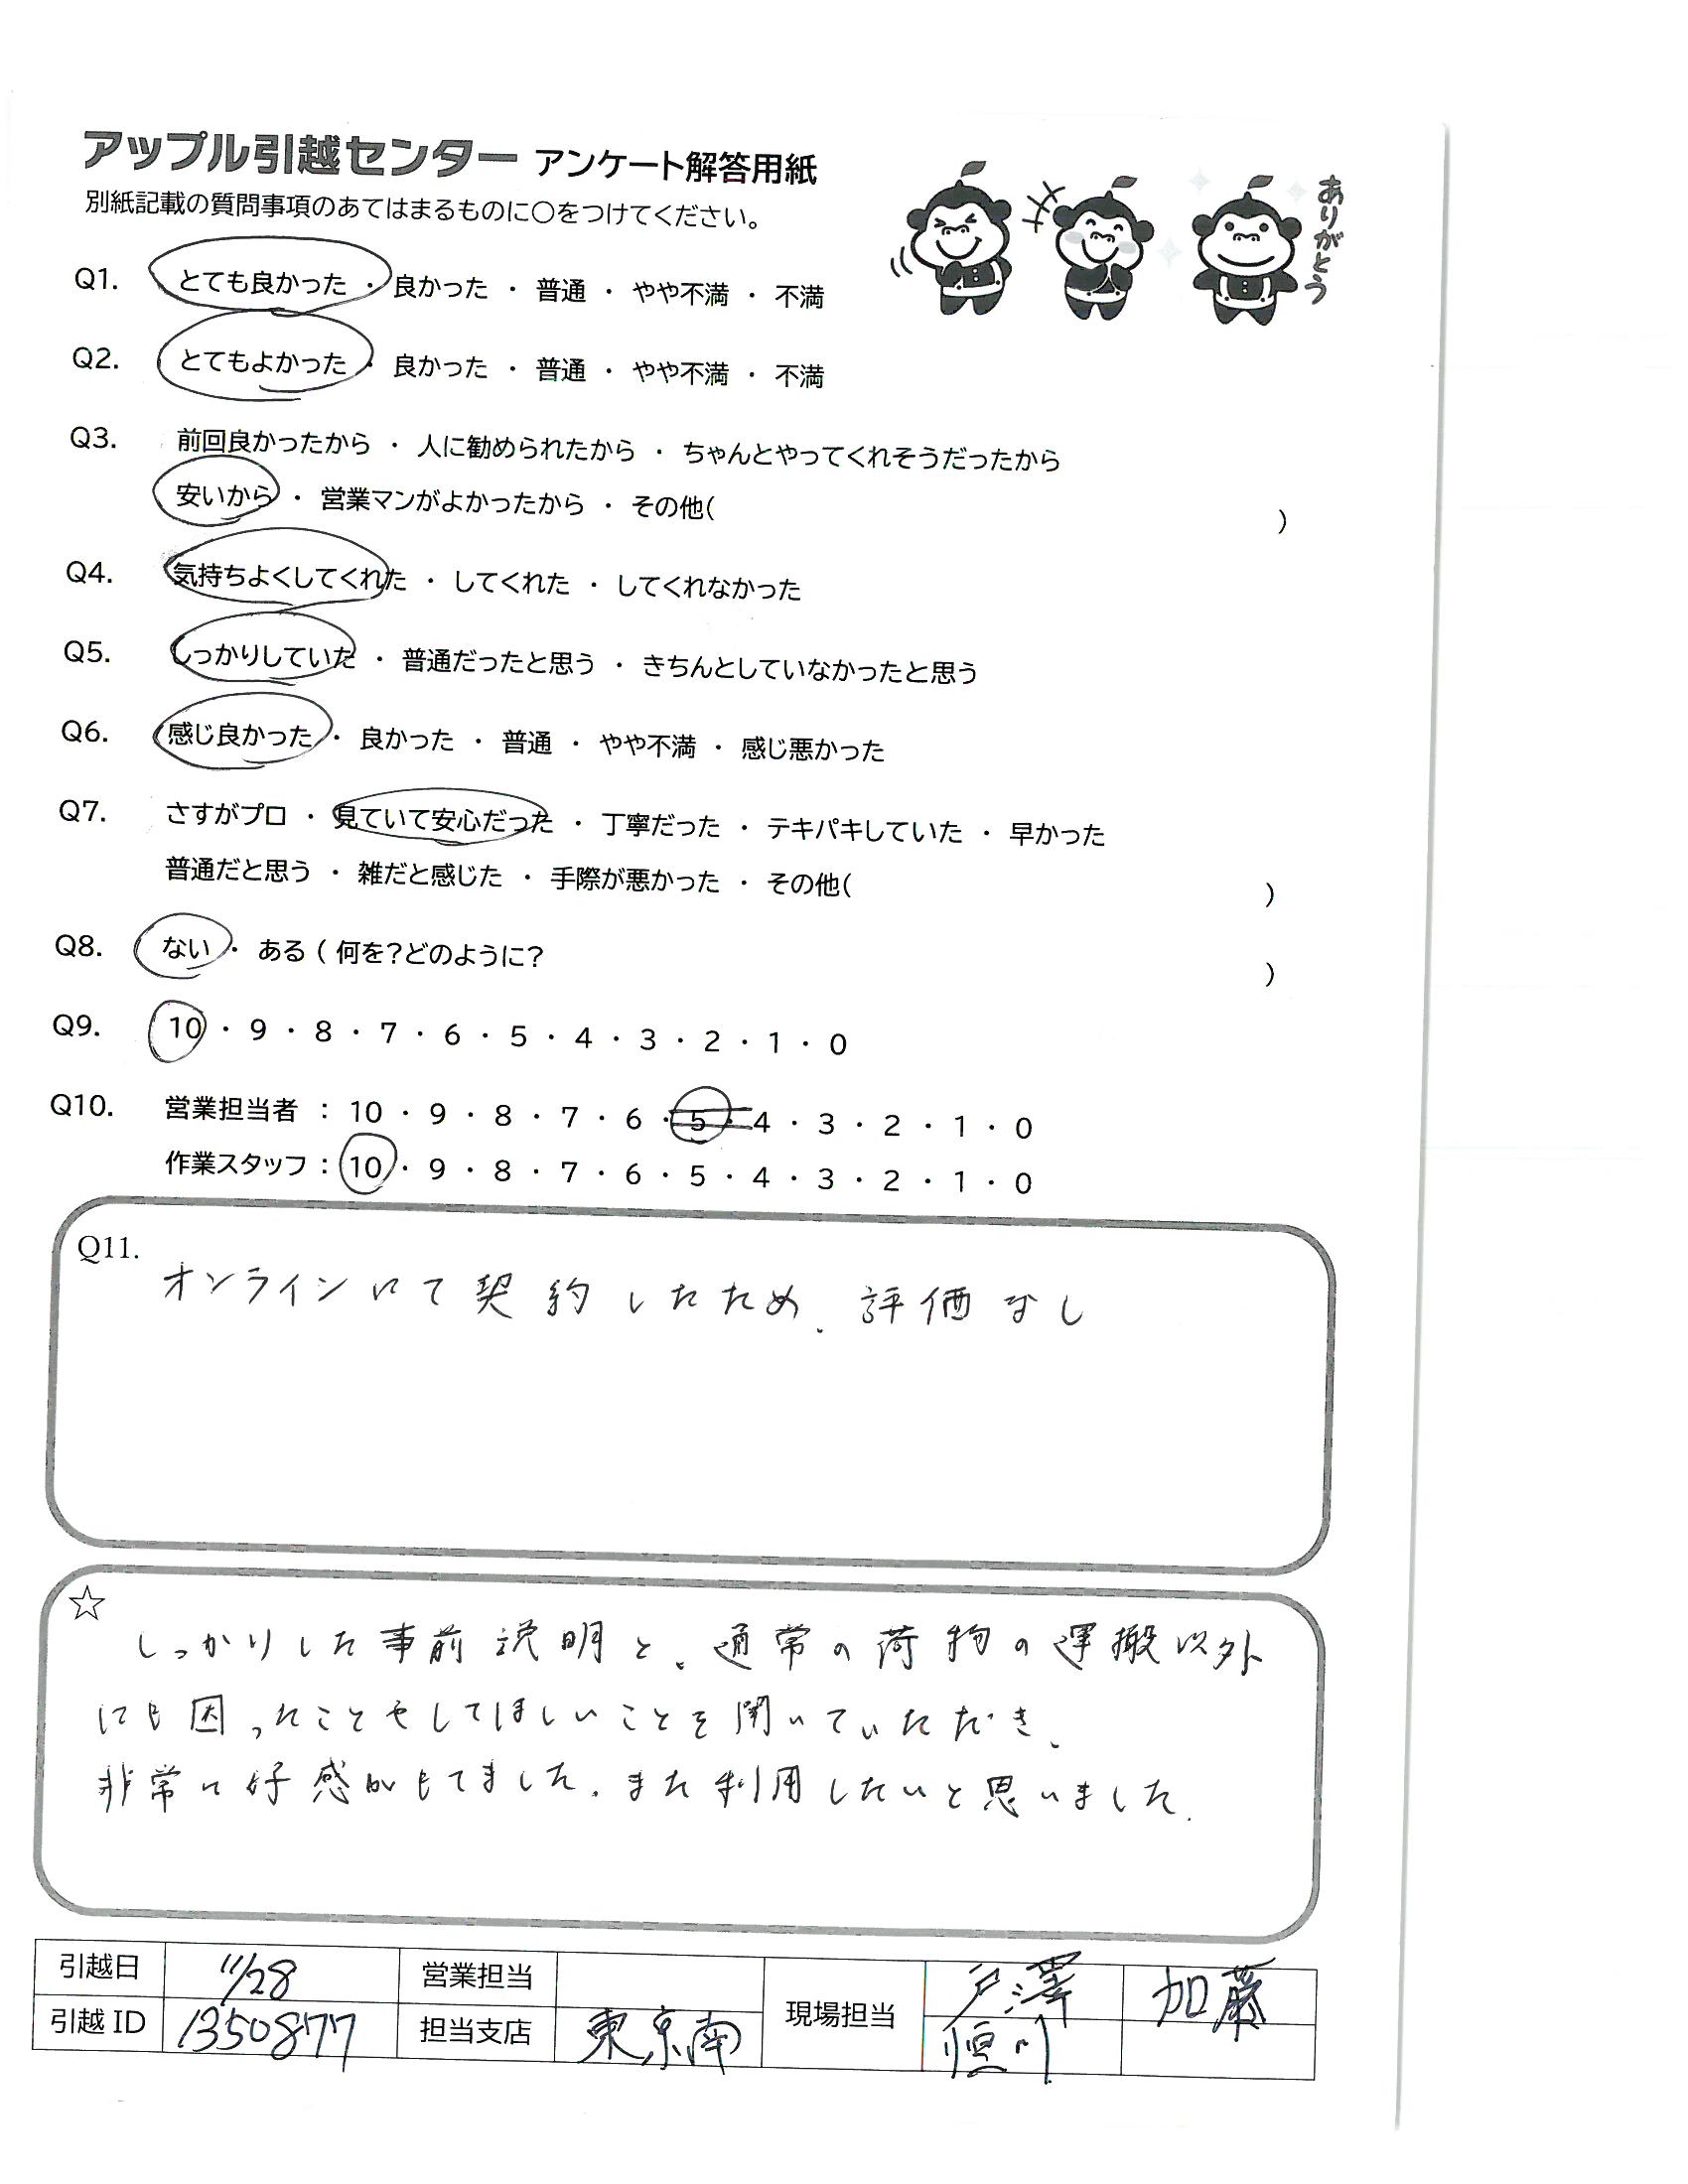 アップル引越センター アンケート解答用紙
別紙記載の質問事項のあてはまるものに〇をつけてください。
ありがとう
Q1. とても良かった ・ 良かった ・ 普通 ・ やや不満 ・ 不満
Q2. とてもよかった ・ 良かった ・ 普通 ・ やや不満 ・ 不満
Q3. 前回良かったから ・ 人に勧められたから ・ ちゃんとやってくれそうだったから
安いから ・ 営業マンがよかったから ・ その他( )
Q4. 気持ちよくしてくれた ・ してくれた ・ してくれなかった
Q5. しっかりしていた ・ 普通だったと思う ・ きちんとしていなかったと思う
Q6. 感じ良かった ・ 良かった ・ 普通 ・ やや不満 ・ 感じ悪かった
Q7. さすがプロ ・ 見ていて安心だった ・ 丁寧だった ・ テキパキしていた ・ 早かった
普通だと思う ・ 雑だと感じた ・ 手際が悪かった ・ その他( )
Q8. ない ・ ある ( 何を?どのように? )
Q9. 10 ・ 9 ・ 8 ・ 7 ・ 6 ・ 5 ・ 4 ・ 3 ・ 2 ・ 1 ・ 0
Q10. 営業担当者 : 10 ・ 9 ・ 8 ・ 7 ・ 6 ・ 5 ・ 4 ・ 3 ・ 2 ・ 1 ・ 0
作業スタッフ : 10 ・ 9 ・ 8 ・ 7 ・ 6 ・ 5 ・ 4 ・ 3 ・ 2 ・ 1 ・ 0
Q11.
オンラインにて契約したため、評価なし
☆
しっかりした事前説明と、通常の荷物の運搬以外
にも困ったことやしてほしいことを聞いていただき、
非常に好感がもてました。また利用したいと思いました。
引越日 11/28 営業担当 現場担当 戸澤 加藤
引越ID 1350877 担当支店 東京南 恒川